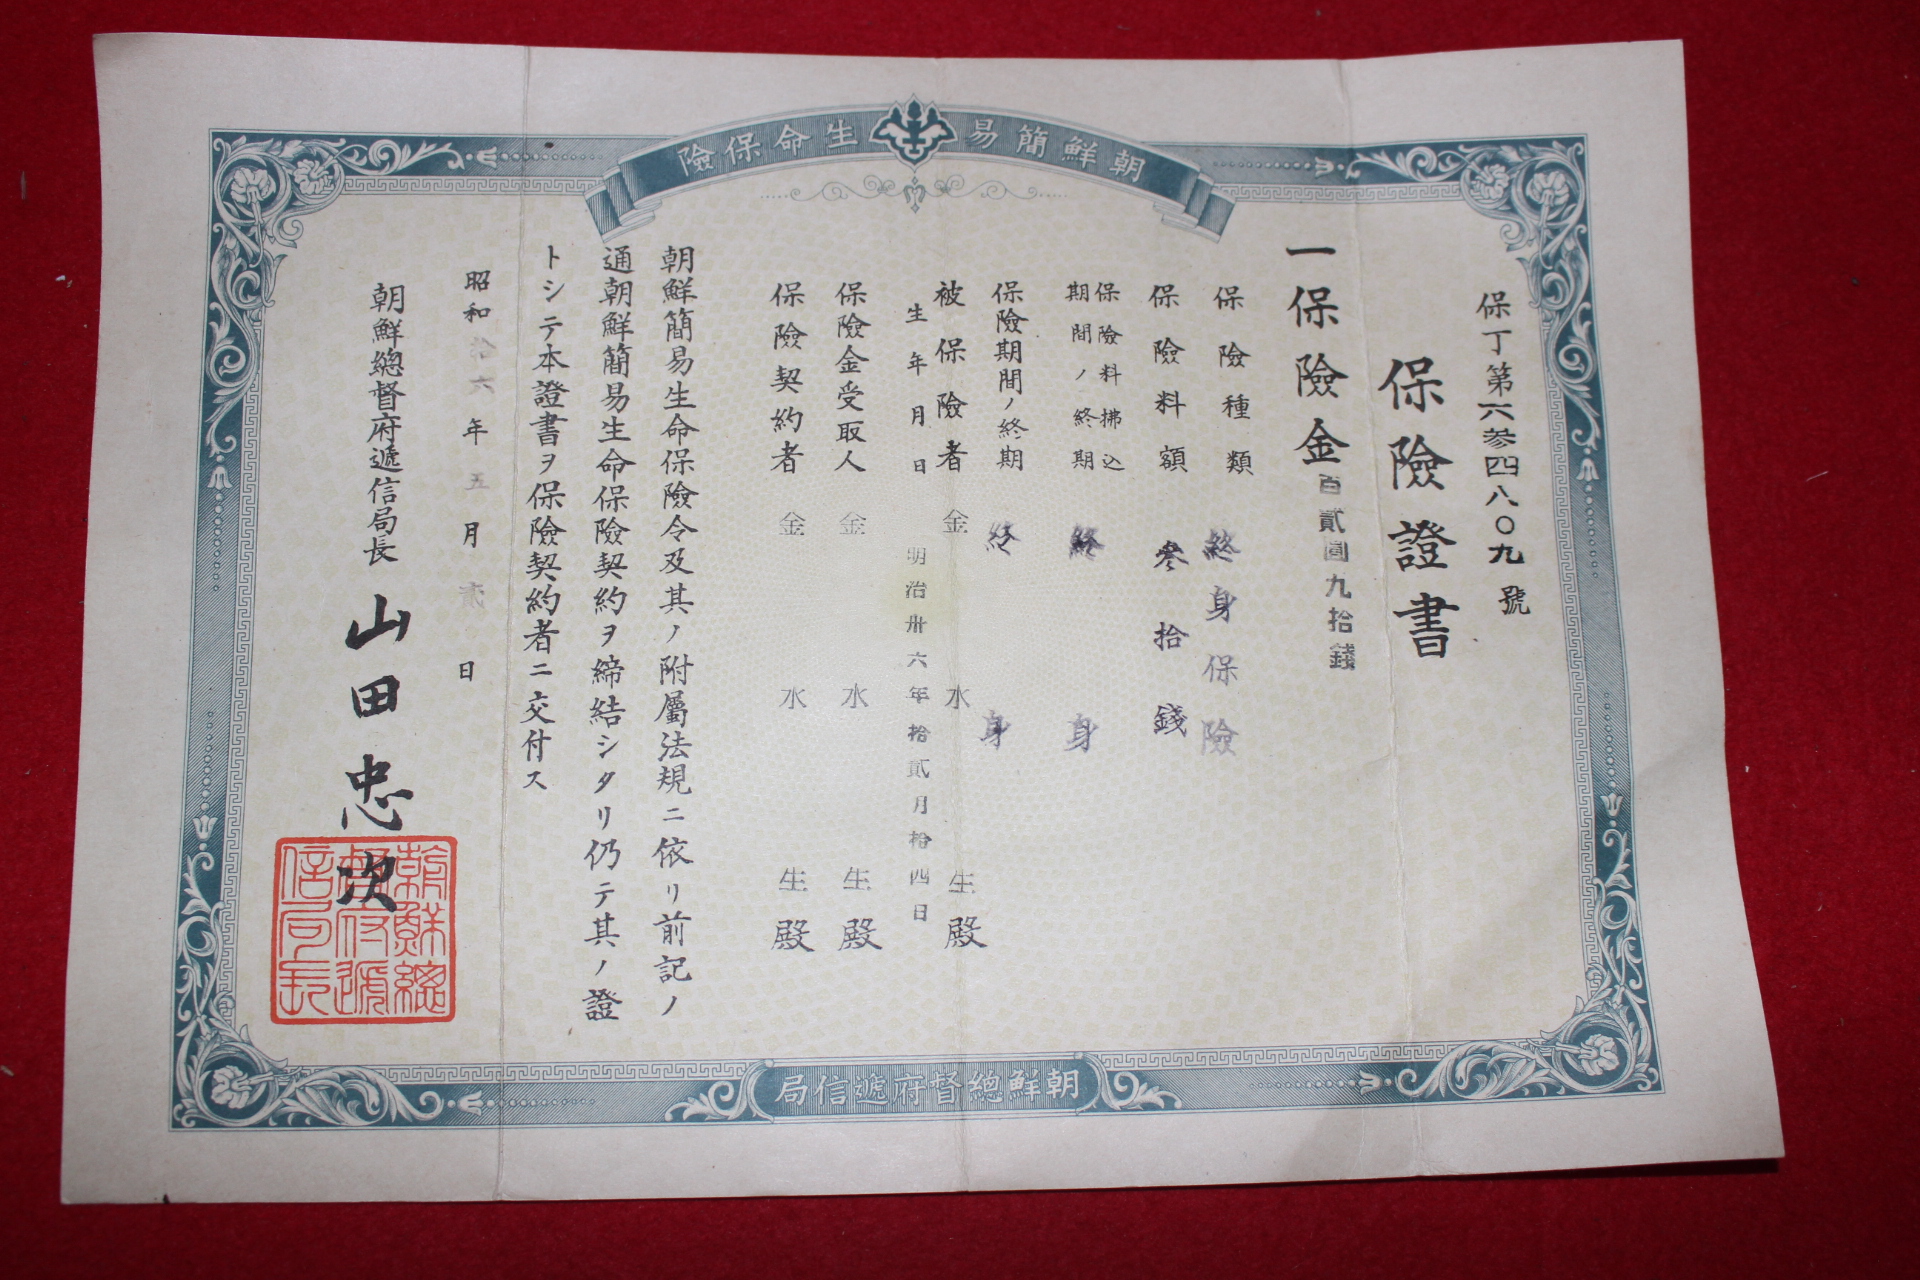 朝鮮簡易生命保險
保丁第六参四八〇九號
保險證書
一保險金百貳圓九拾錢
保險種類 終身保險
保險料額 参拾錢
保險料拂込期間ノ終期 終身
保險期間ノ終期 終身
被保險者 金水生殿
生年月日 明治卅六年拾貳月拾四日
保險金受取人 金水生殿
保險契約者 金水生殿
朝鮮簡易生命保險令及其ノ附屬法規ニ依リ前記ノ
通朝鮮簡易生命保險契約ヲ締結シタリ仍テ其ノ證
トシテ本證書ヲ保險契約者ニ交付ス
昭和拾六年五月貳日
朝鮮總督府遞信局長 山田忠次
朝鮮總督府遞信局長
朝鮮總督府遞信局